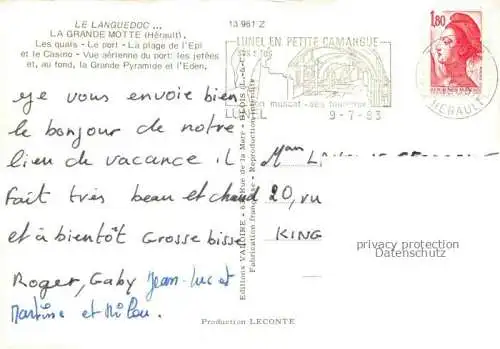 LE LANGUEDOC ...
LA GRANDE MOTTE (Hérault).
Les quais - Le port - La plage de l'Epi
et le Casino - Vue aérienne du port: les jetées
et, au fond, la Grande Pyramide et l'Eden.
13 961 Z
LUNEL EN PETITE CAMARGUE
muscat - ses
LUNEL
9-7-83
1,80
HERAULT
je vous envoie bien
le bonjour de notre
lieu de vacance il
fait très beau et chaud
et à bientôt Grosse bisse
Roger, Gaby Jean-luc et
Martine et Milou.
20, ru
KING
privacy protection
Datenschutz
Editions VALOIRE - Rue de la Mare - BLOIS (L.-&-C.)
Fabrication française - Reproduction
Production LECONTE